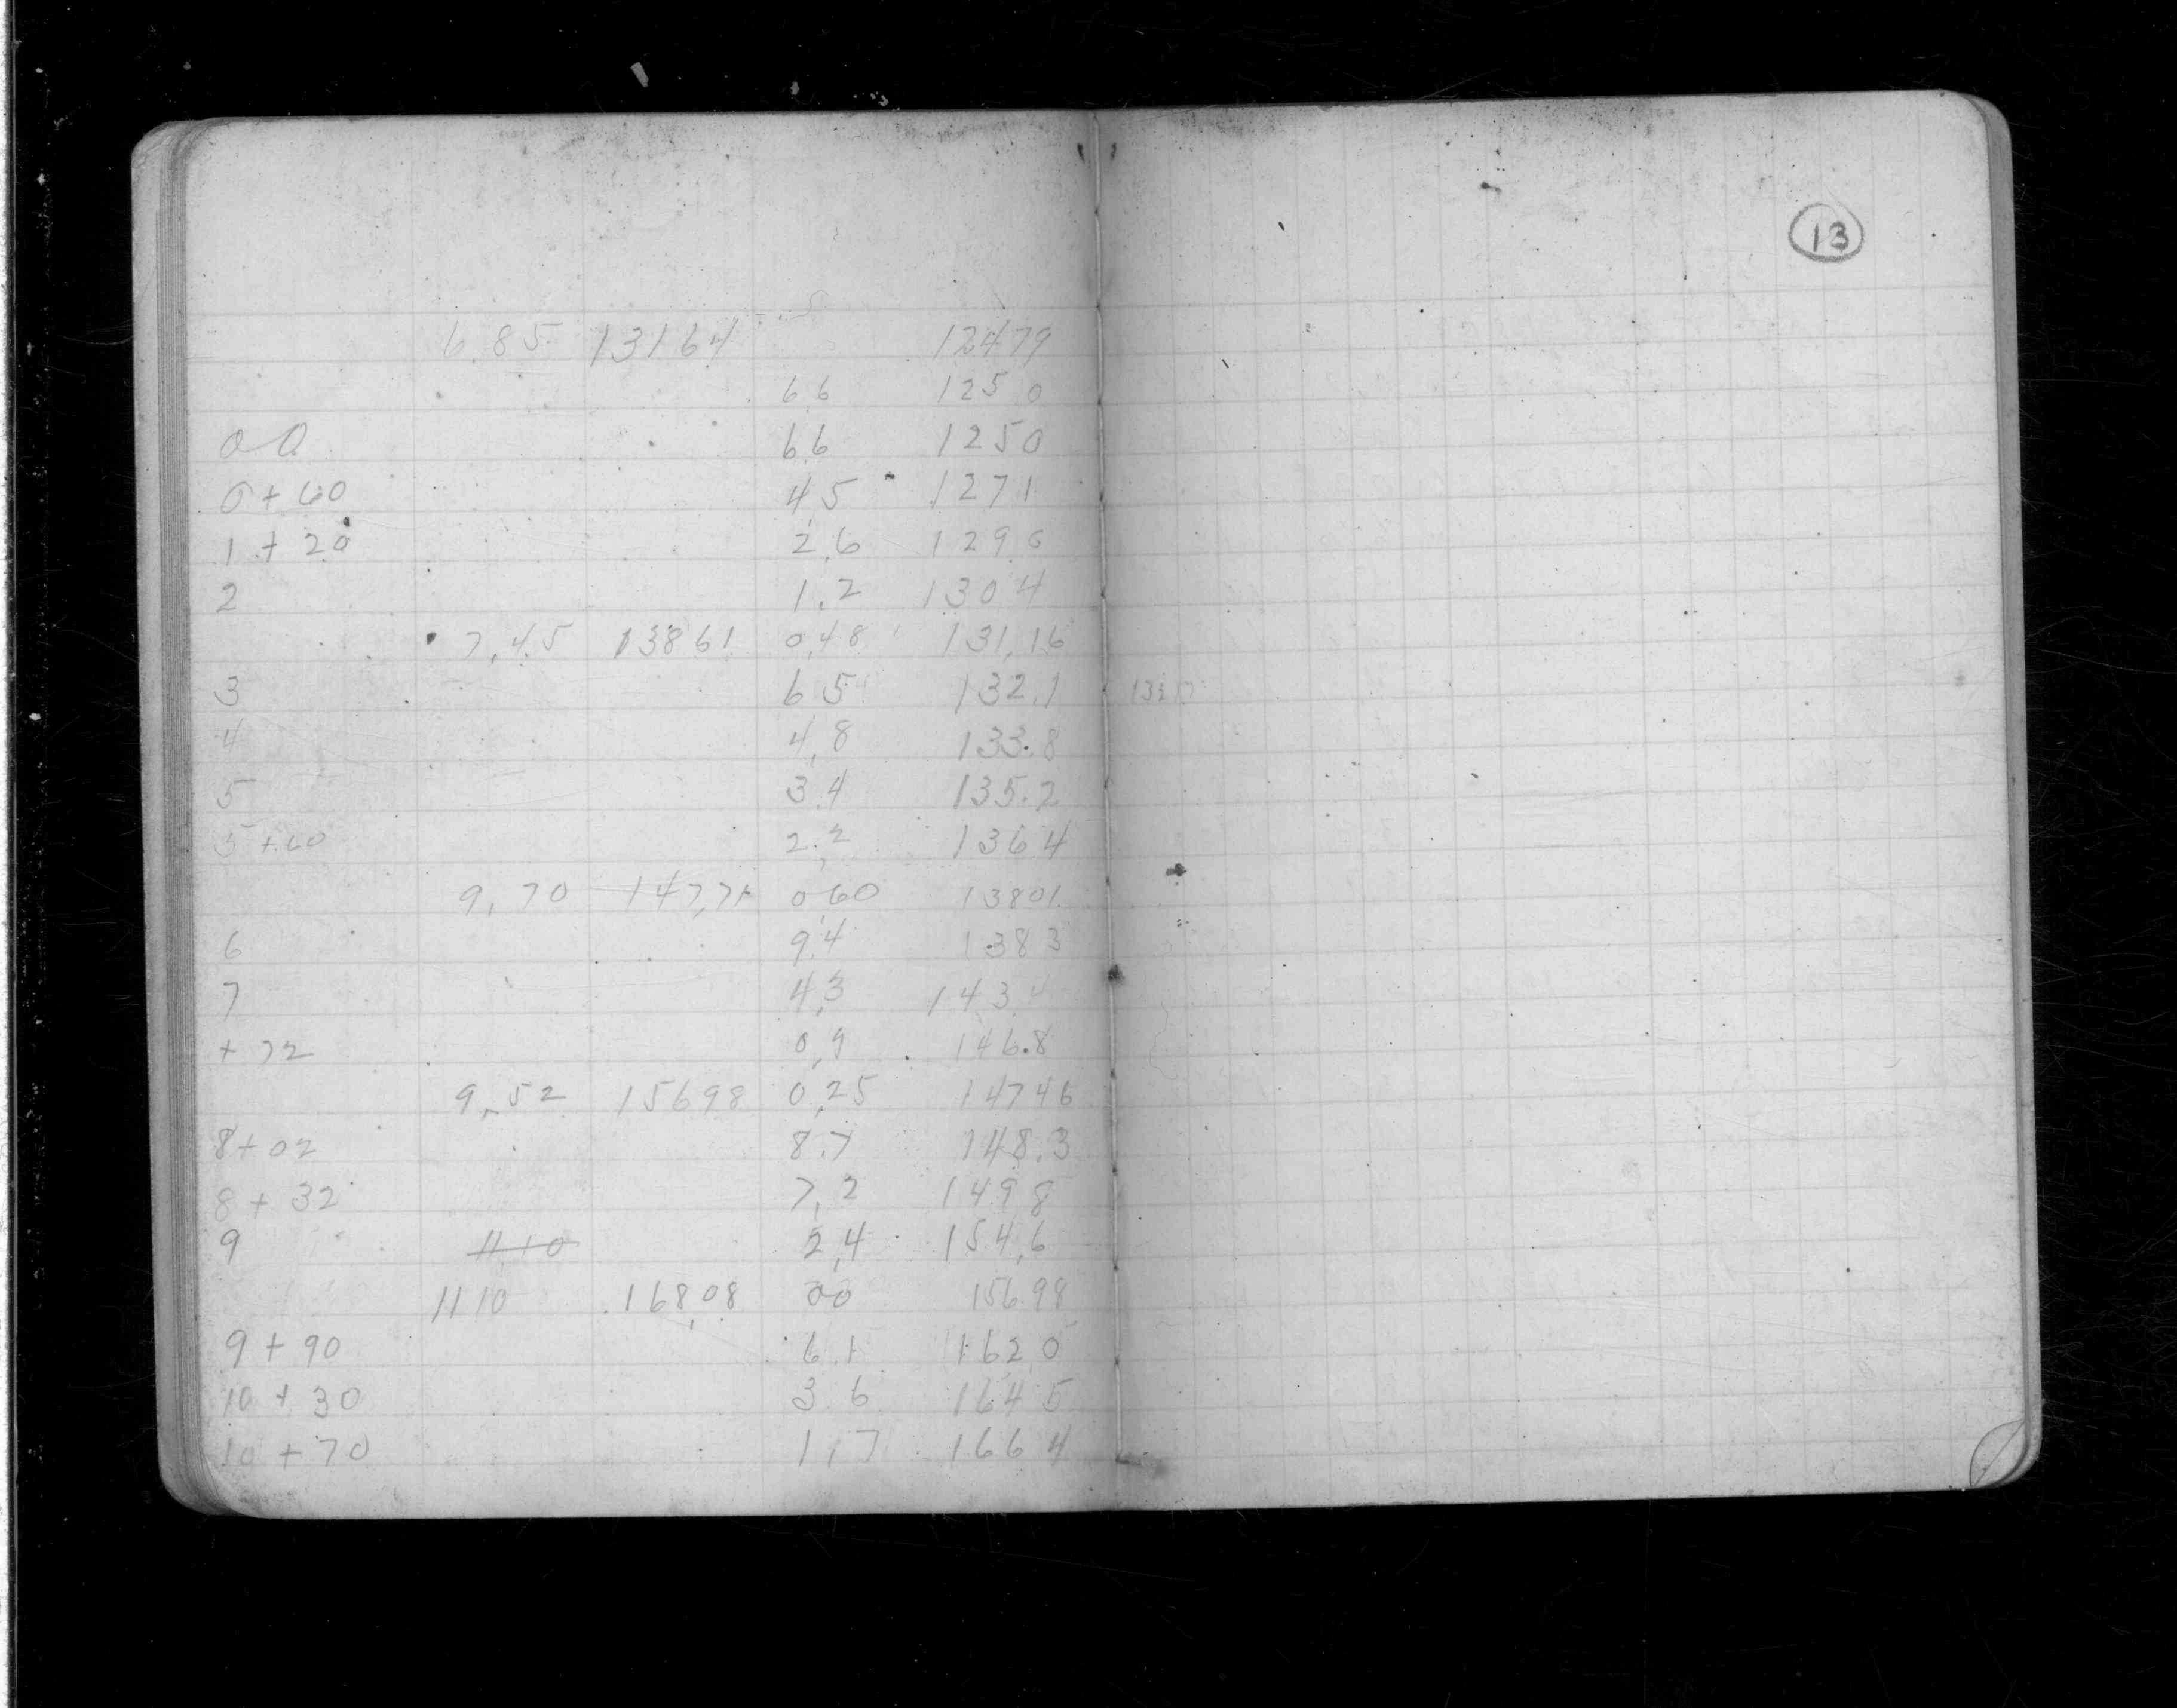 13
6.85 13164 12479
6 6 125 0
00 6 6 1250
0+60 4 5 1271
1 + 20 2.6 129 0
2 1.2 130 4
7,45 13861 0,48 131,16
3 6 5 132.1
4 4,8 133.8
5 3.4 135.2
5 +60 2.2 136 4
9,70 147,71 0 60 13801
6 9.4 138 3
7 4,3 143.4
+ 72 0,9 146.8
9,52 15698 0,25 14746
8+02 8.7 148.3
8 + 32 7,2 149 8
9 11 10 2,4 154,6
11 10 168,08 00 156.98
9 + 90 6.1 162 0
10 + 30 3 6 164 5
10 + 70 1,7 166 4